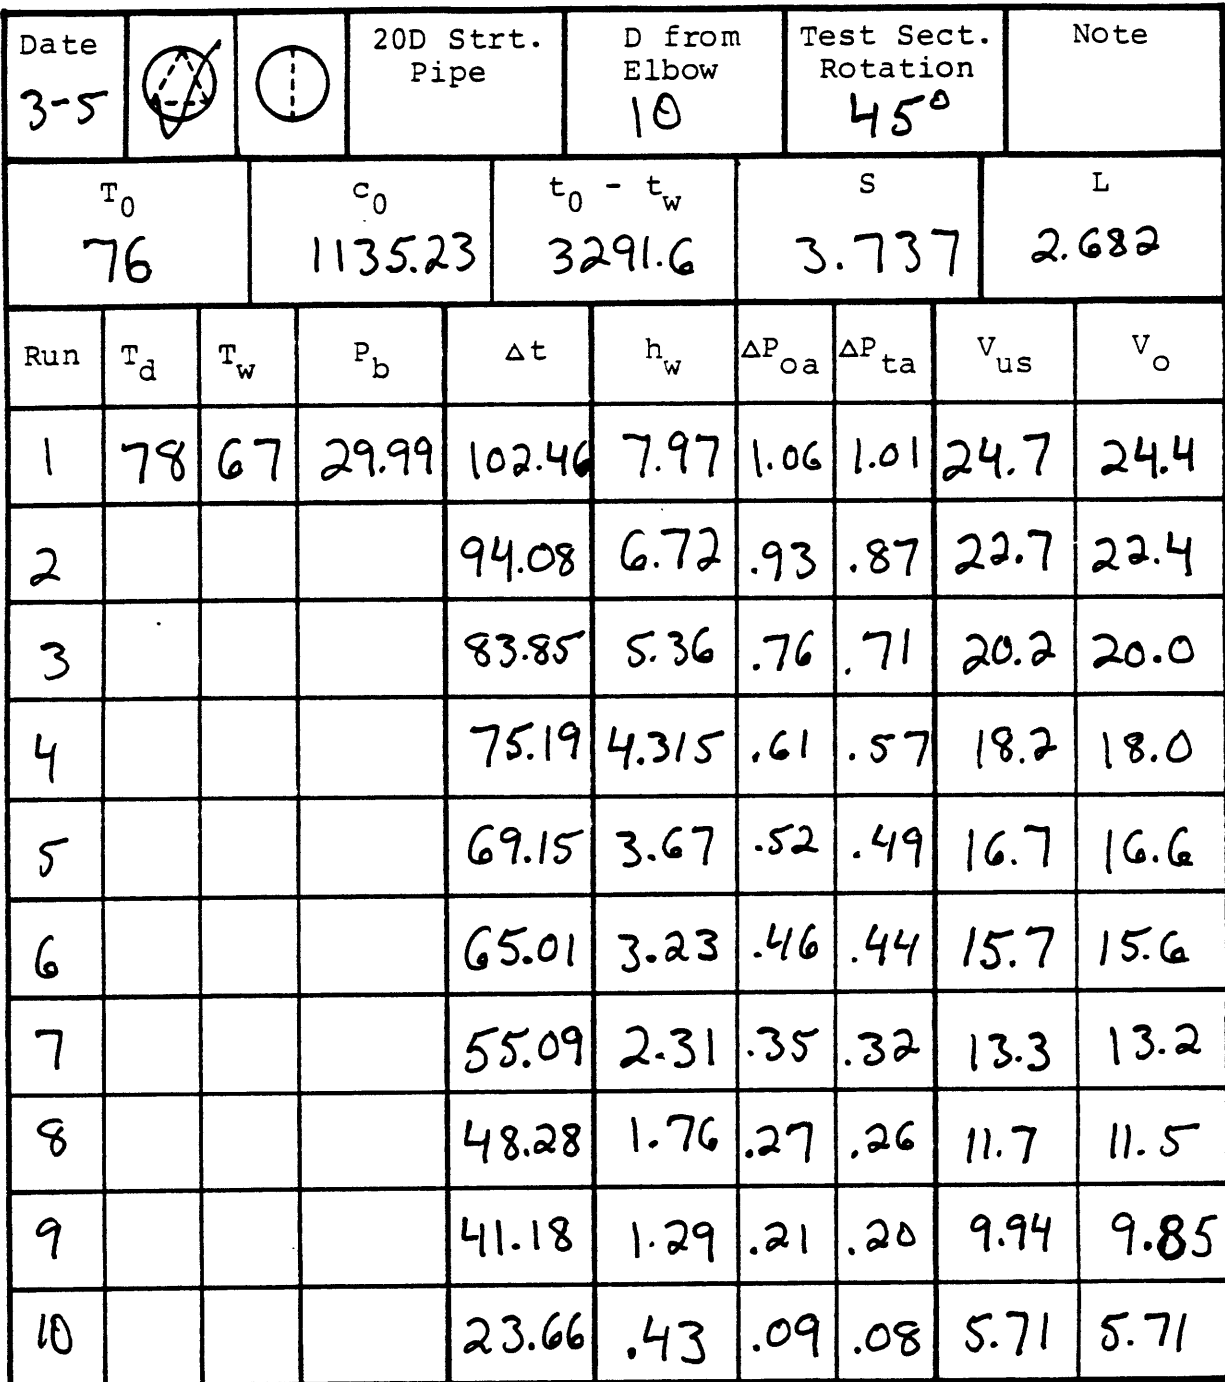 Date 20D Strt. D from Test Sect. Note
Pipe Elbow Rotation
3-5 10 45°
T₀ c₀ t₀ - t_w S L
76 1135.23 3291.6 3.737 2.682
Run T_d T_w P_b Δt h_w ΔP_oa ΔP_ta V_us V_o
1 78 67 29.99 102.46 7.97 1.06 1.01 24.7 24.4
2 94.08 6.72 .93 .87 22.7 22.4
3 83.85 5.36 .76 .71 20.2 20.0
4 75.19 4.315 .61 .57 18.2 18.0
5 69.15 3.67 .52 .49 16.7 16.6
6 65.01 3.23 .46 .44 15.7 15.6
7 55.09 2.31 .35 .32 13.3 13.2
8 48.28 1.76 .27 .26 11.7 11.5
9 41.18 1.29 .21 .20 9.94 9.85
10 23.66 .43 .09 .08 5.71 5.71